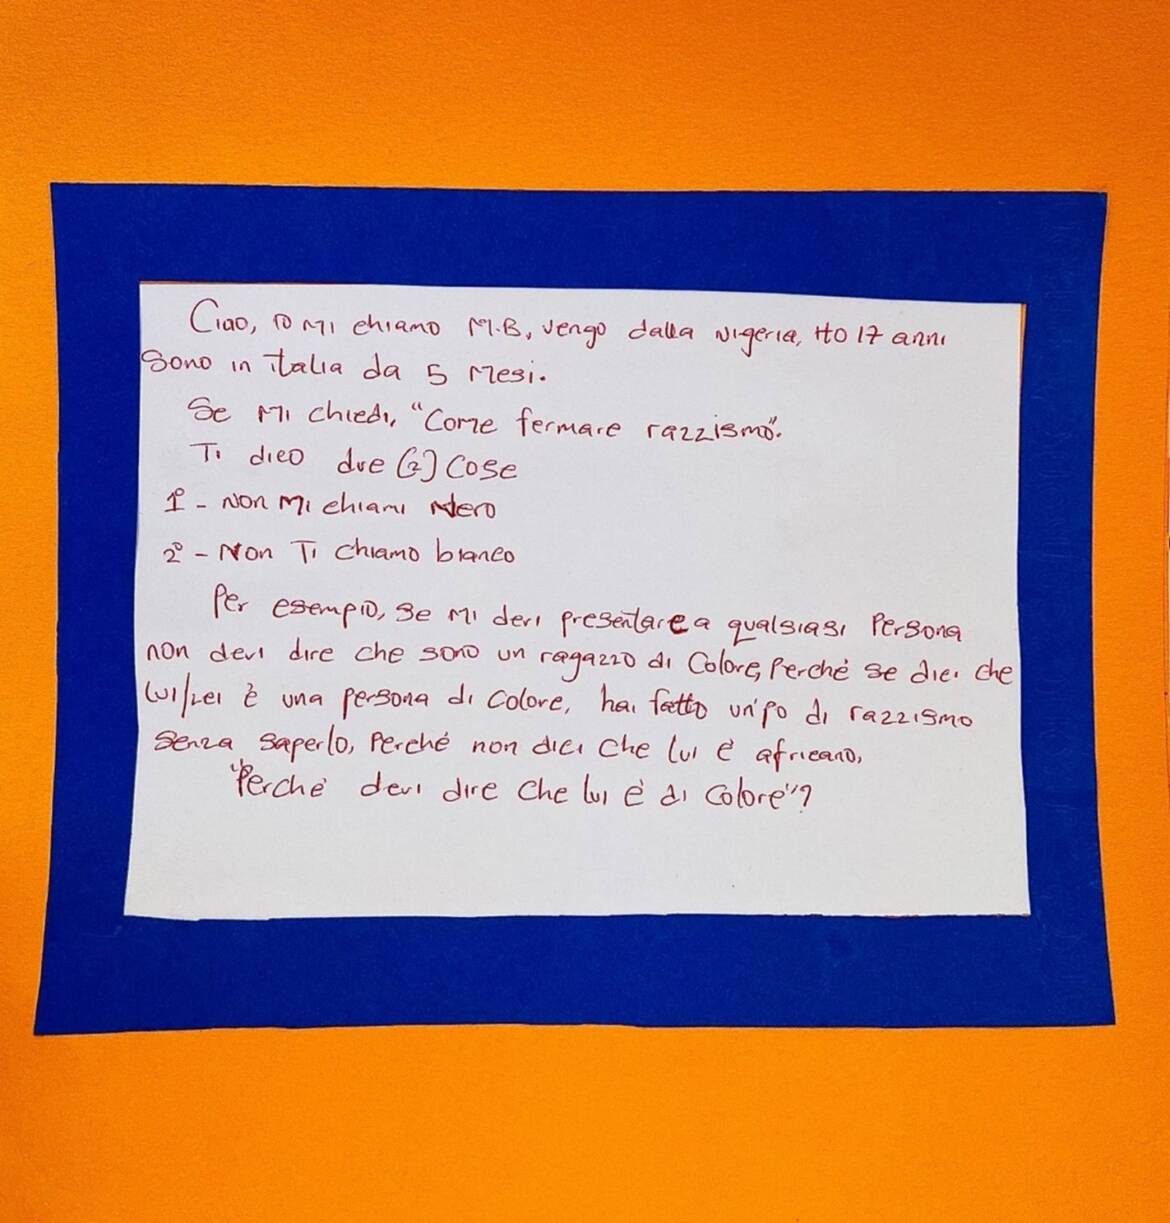 Ciao, io mi chiamo M.B, vengo dalla Nigeria, Ho 17 anni
Sono in italia da 5 Mesi.
Se Mi chiedi, "Come fermare razzismo".
Ti dico due (2) Cose
1° - Non Mi chiami Nero
2° - Non Ti chiamo bianco
Per esempio, se mi devi presentare a qualsiasi Persona
non devi dire che sono un ragazzo di Colore, Perché se dici che
lui/Lei è una persona di colore, hai fatto un'po di razzismo
senza saperlo, Perché non dici che lui è africano,
"Perché devi dire che lui è di Colore"?